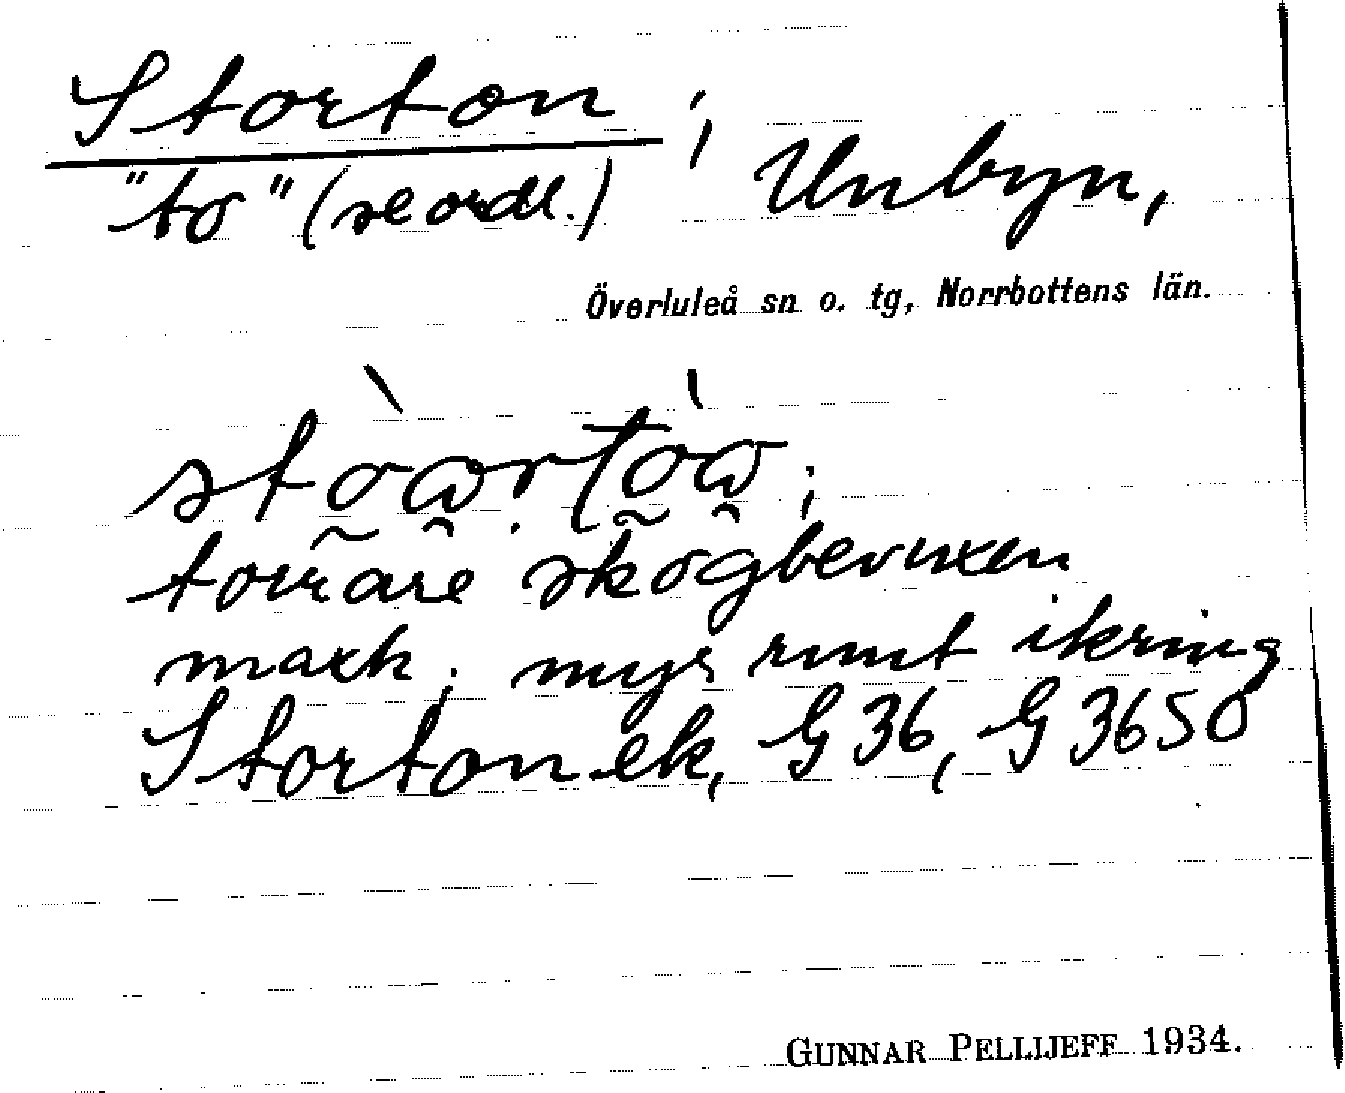 Storton ; Unbyn,
"to" (se ordl.)
Överluleå sn o. tg, Norrbottens län.
torrare skogbevuxen
mark; myr runt ikring
Storton ek, G 36, G 3650
GUNNAR PELLIJEFF 1934.